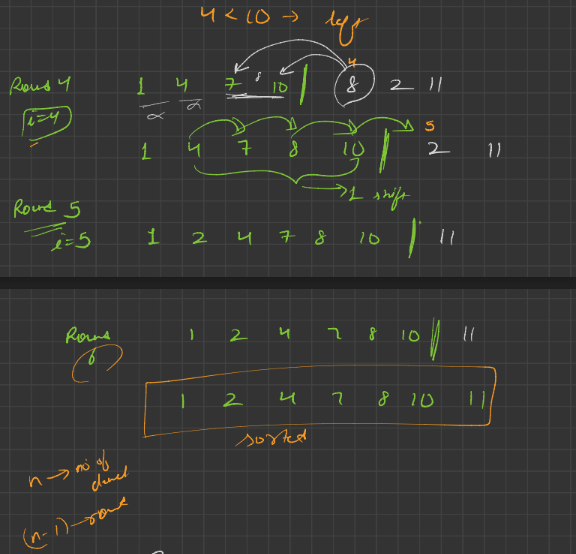 4 < 10 → left
4
Round 4 1 4 7 8 10 | 8 2 11
i=4
5
1 4 7 8 10 | 2 11
→ 1 shift
Round 5
i=5 1 2 4 7 8 10 | 11
Round 1 2 4 7 8 10 || 11
6
1 2 4 7 8 10 11
sorted
n → no of
(n-1) →